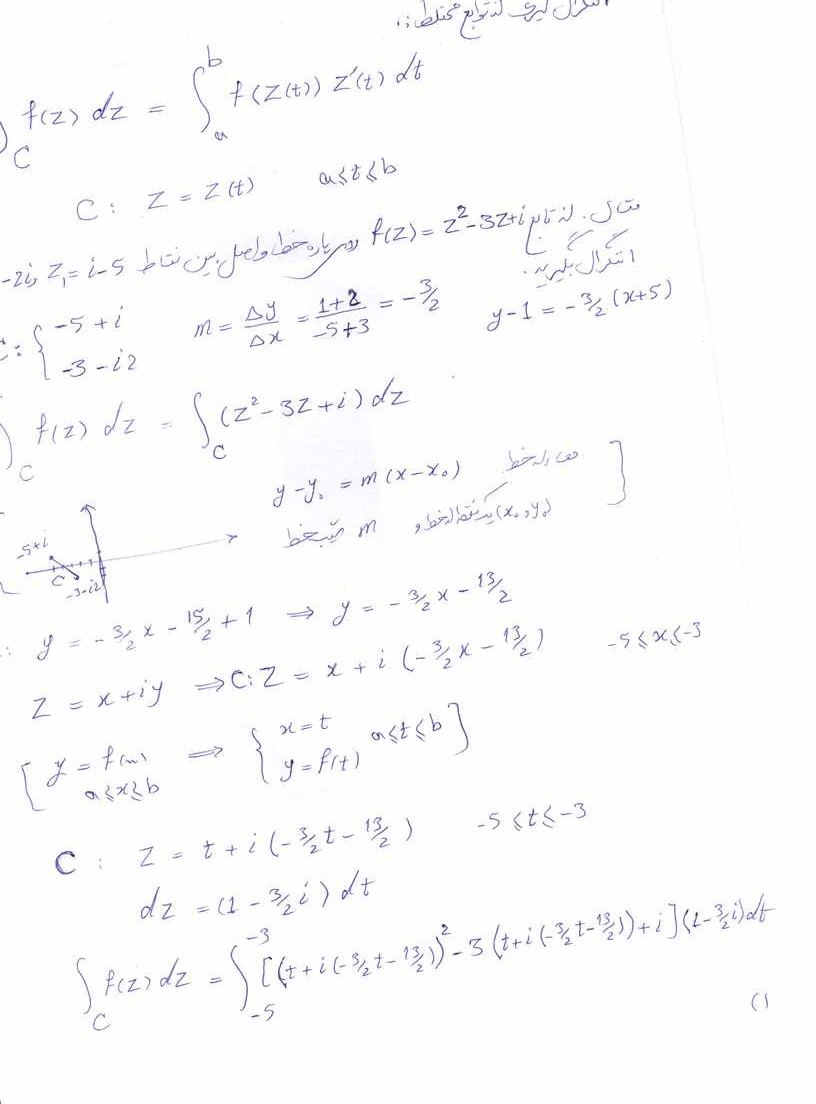 انتگرال گیری از توابع مختلط:
∫_C f(z) dz = ∫_a^b f(z(t)) z'(t) dt
C: z = z(t)   a≤t≤b
مثال. از تابع f(z) = z²-3z+i روی پاره خط واصل بین نقاط z₁=i-5 و -2i
انتگرال بگیرید.
C: { -5+i   m = Δy/Δx = 1+2/-5+3 = -3/2   y-1 = -3/2 (x+5)
-3-i2
∫_C f(z) dz = ∫_C (z²-3z+i) dz
y-y₀ = m(x-x₀) معادله خط ]
(x₀,y₀) یک نقطه از خط و m شیب خط
-5+i
C
-3-i2
: y = -3/2 x - 15/2 + 1 ⇒ y = -3/2 x - 13/2
z = x+iy ⇒ C: z = x + i (-3/2 x - 13/2)   -5≤x≤-3
[ y = f(x) ⇒ { x=t   a≤t≤b ]
a≤x≤b   y=f(t)
C : z = t + i (-3/2 t - 13/2)   -5≤t≤-3
dz = (1 - 3/2 i) dt
∫_C f(z) dz = ∫_-5^-3 [(t+i(-3/2 t - 13/2))² - 3(t+i(-3/2 t - 13/2))+i](1-3/2 i)dt
(1